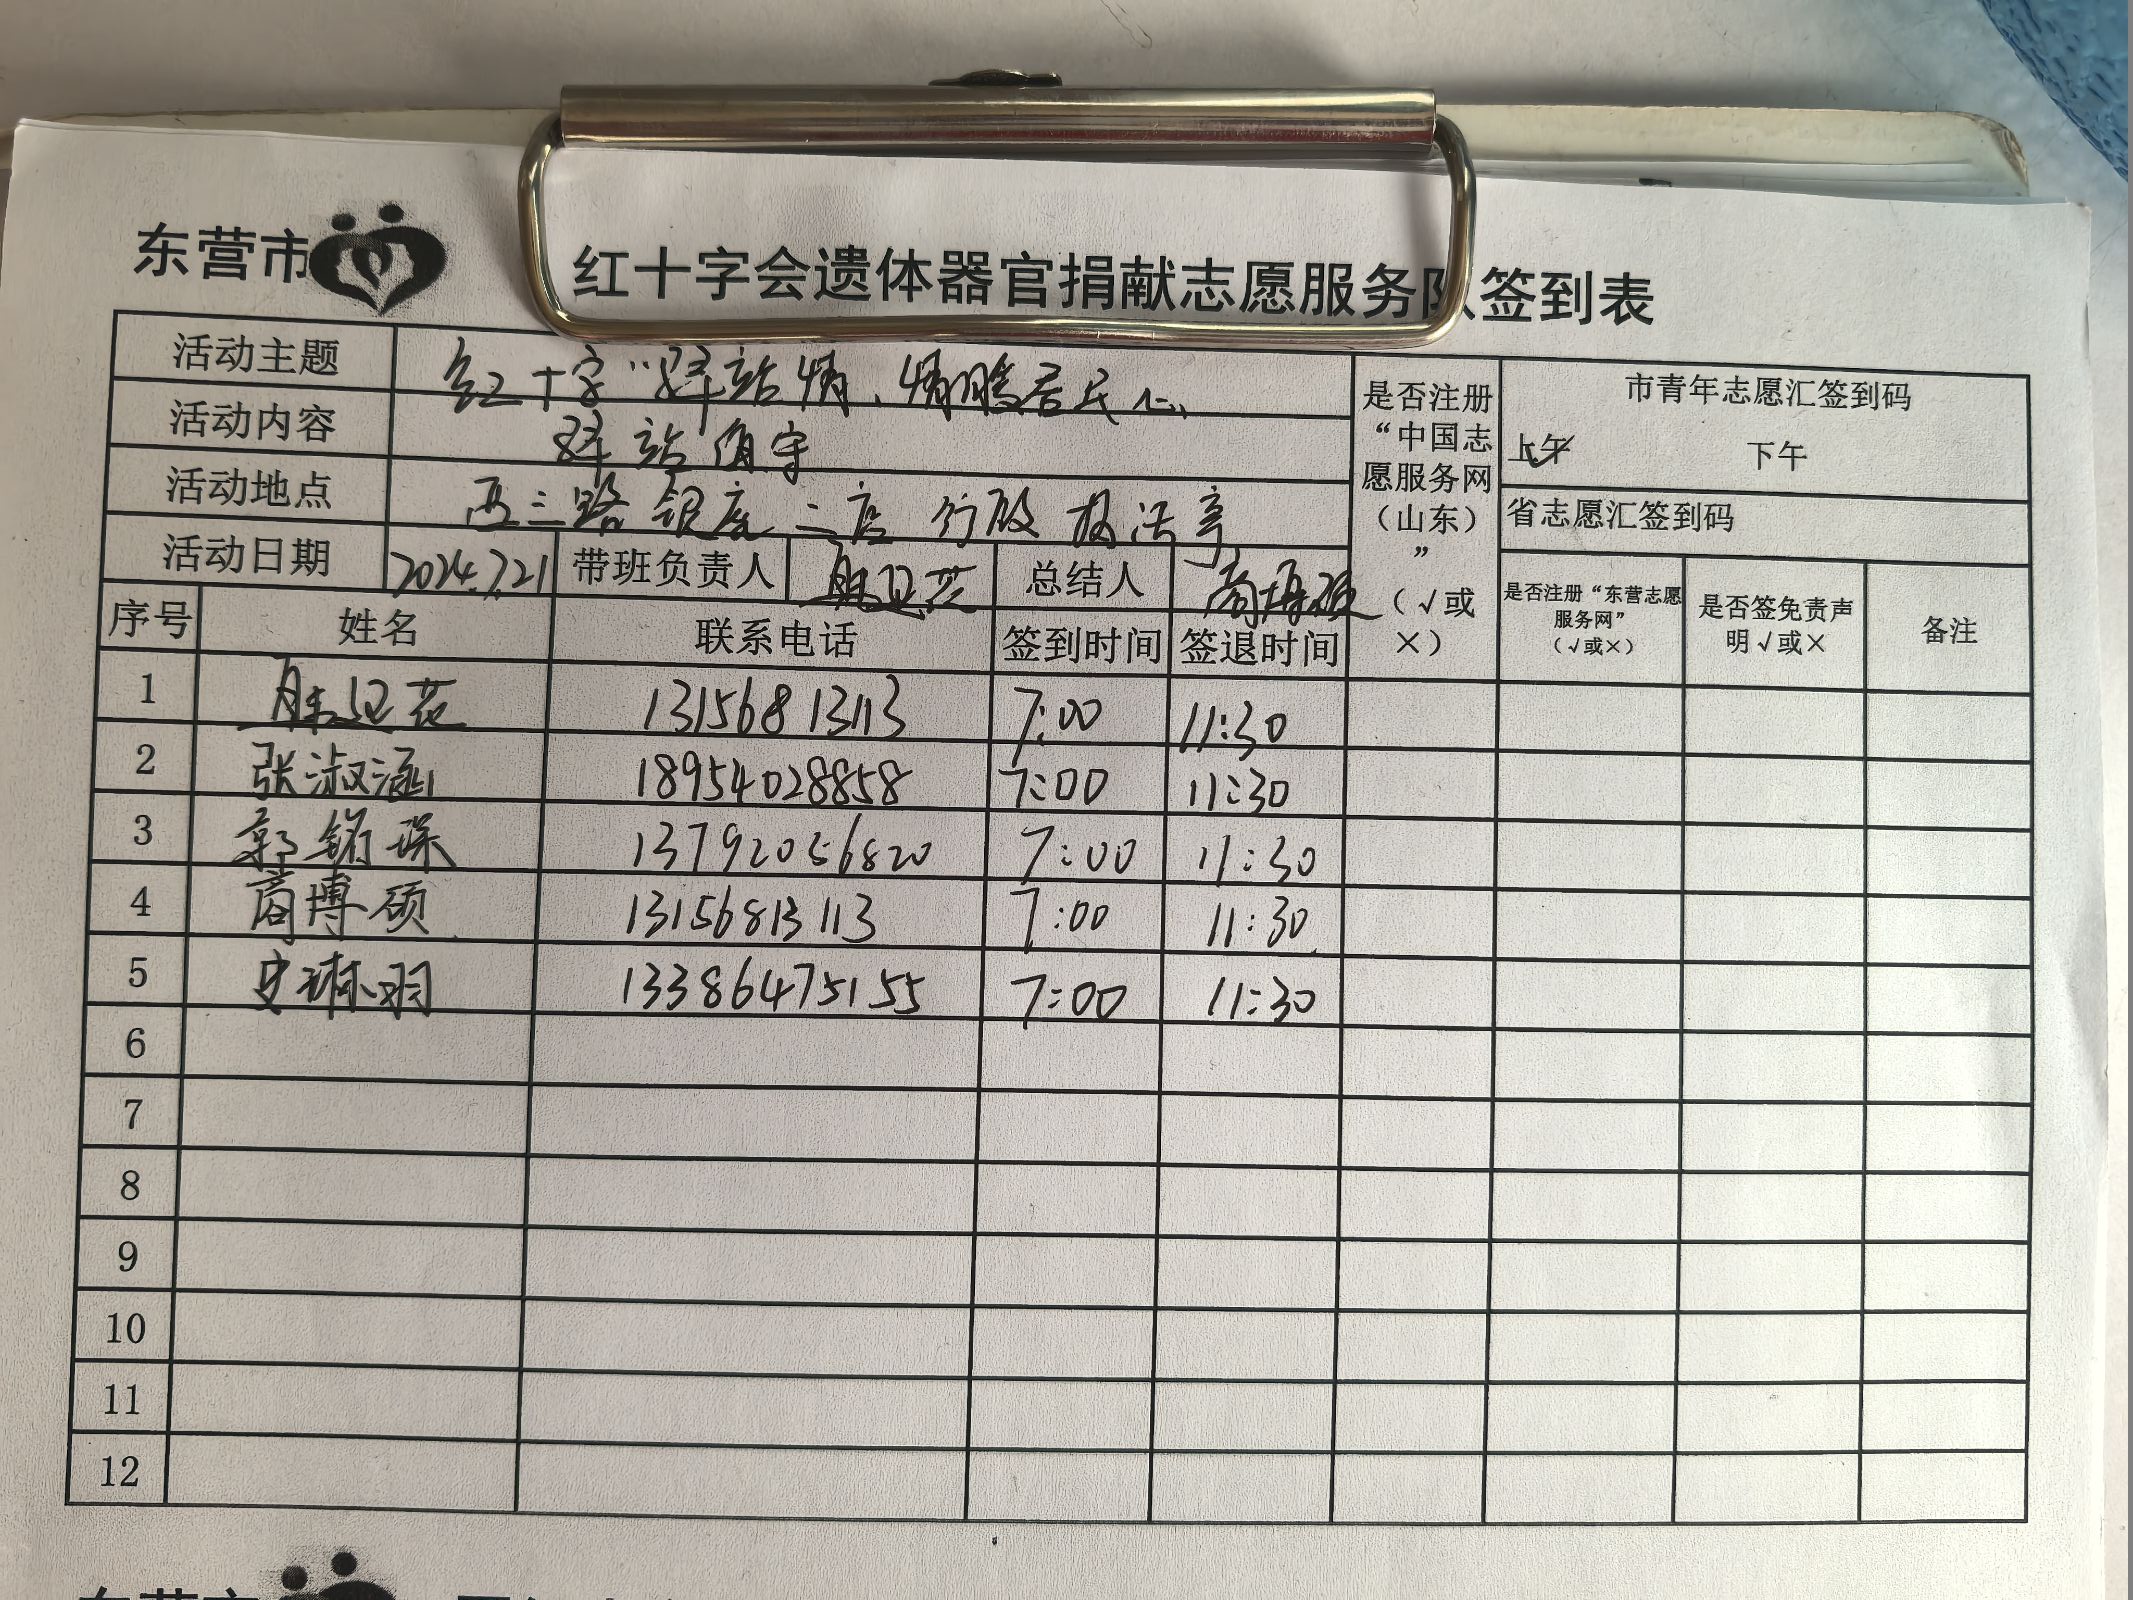 东营市 红十字会遗体器官捐献志愿服务队签到表
活动主题 红十字"驿站情、情暖居民心
活动内容 驿站值守
活动地点 西三路银座二店行政执法亭
活动日期 2024.7.21 带班负责人 总结人 商博硕
是否注册“中国志愿服务网（山东）”（√或×）
市青年志愿汇签到码
上午 ✓ 下午
省志愿汇签到码
序号 姓名 联系电话 签到时间 签退时间 是否注册“东营志愿服务网”（√或×） 是否签免责声明√或× 备注
1 花 13156813113 7:00 11:30
2 张淑涵 18954028858 7:00 11:30
3 郭铭琛 13792056820 7:00 11:30
4 商博硕 13156813113 7:00 11:30
5 安琳羽 13386475155 7:00 11:30
6
7
8
9
10
11
12
东营市